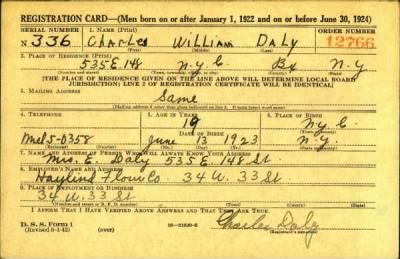 REGISTRATION CARD—(Men born on or after January 1, 1922 and on or before June 30, 1924)
SERIAL NUMBER 1. NAME (Print) ORDER NUMBER
N 336 CHARLES WILLIAM DALY 12766
(First) (Middle) (Last)
2. PLACE OF RESIDENCE (Print)
535 E. 148 N.Y.C. Bx N.Y
(Number and street) (Town, township, village, or city) (County) (State)
[THE PLACE OF RESIDENCE GIVEN ON THE LINE ABOVE WILL DETERMINE LOCAL BOARD
JURISDICTION; LINE 2 OF REGISTRATION CERTIFICATE WILL BE IDENTICAL]
3. MAILING ADDRESS
Same
[Mailing address if other than place indicated on line 2. If same insert word same]
4. TELEPHONE 5. AGE IN YEARS 6. PLACE OF BIRTH
19 N.Y.C.
DATE OF BIRTH (Town or county)
Mel5-0358 June 13 1923 N.Y.
(Exchange) (Number) (Mo.) (Day) (Yr.) (State or country)
7. NAME AND ADDRESS OF PERSON WHO WILL ALWAYS KNOW YOUR ADDRESS
Mrs. E. Daly 535 E. 148 St
8. EMPLOYER'S NAME AND ADDRESS
Flour Co. 34 W. 33 St.
9. PLACE OF EMPLOYMENT OR BUSINESS
34 W. 33 St
(Number and street or R. F. D. number) (Town) (County) (State)
I AFFIRM THAT I HAVE VERIFIED ABOVE ANSWERS AND THAT THEY ARE TRUE.
D. S. S. Form 1
(Revised 6-1-42) (over) Charles Daly
(Registrant's signature)